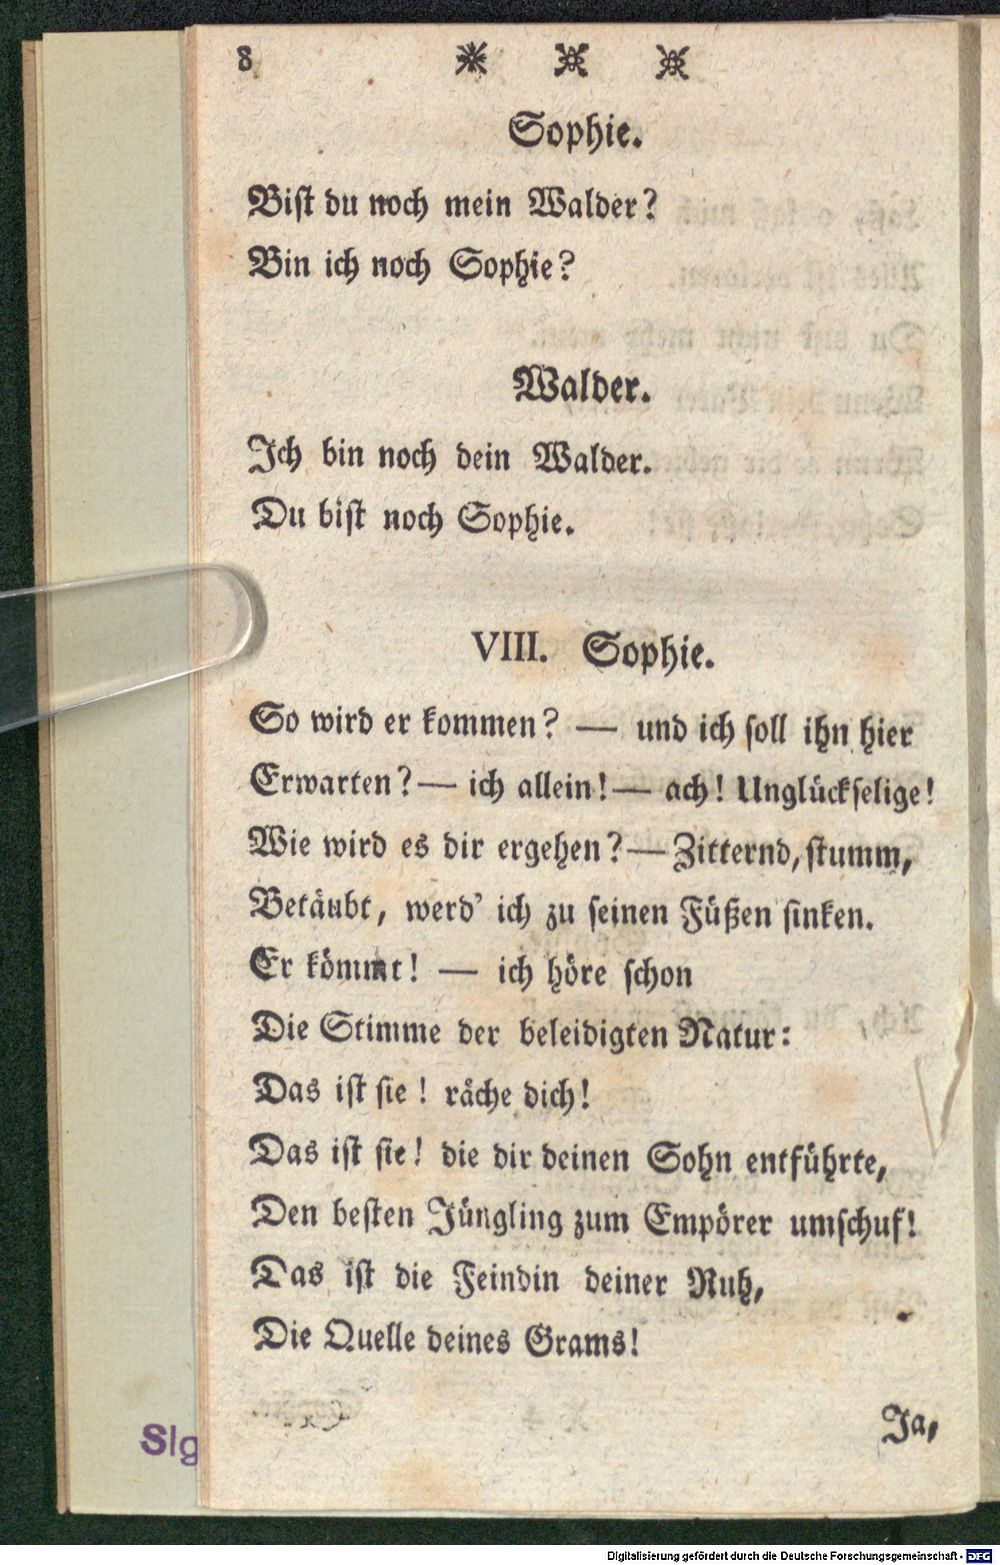 8
Sophie.
Bist du noch mein Walder?
Bin ich noch Sophie?
Walder.
Ich bin noch dein Walder.
Du bist noch Sophie.
VIII. Sophie.
So wird er kommen? — und ich soll ihn hier
Erwarten? — ich allein! — ach! Unglückselige!
Wie wird es dir ergehen? — Zitternd, stumm,
Betäubt, werd' ich zu seinen Füßen sinken.
Er kömmt! — ich höre schon
Die Stimme der beleidigten Natur:
Das ist sie! räche dich!
Das ist sie! die dir deinen Sohn entführte,
Den besten Jüngling zum Empörer umschuf!
Das ist die Feindin deiner Ruh,
Die Quelle deines Grams!
Ja,
Sig
Digitalisierung gefördert durch die Deutsche Forschungsgemeinschaft - DFG